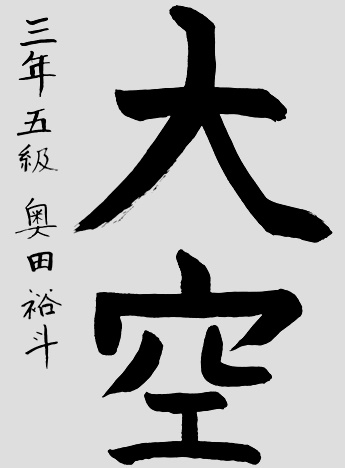 大空
三年五級 奥田裕斗